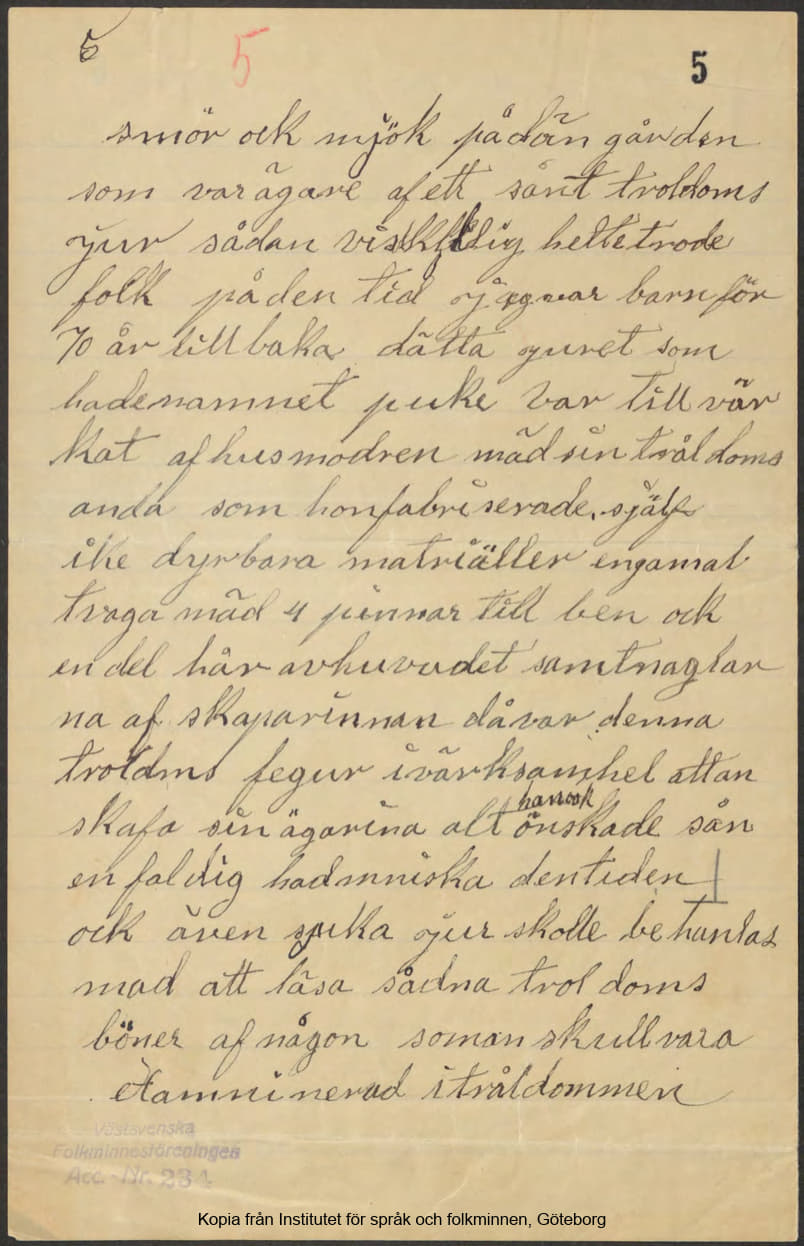 5 5 5
smör ock mjök på dän gården
som var ägare af ett sånt troldoms
jur sådan vidskeplig heltetrode
folk på den tid jag var barn för
70 år till baka dätta juret som
hade namnet puke var till vär
kat af husmodren mäd sin tråldoms
anda som hon fabriserade själf
ike dyrbara matriäller en gamal
traga mäd 4 pinnar till ben ock
en del hår av huvudet samt naglar
na af skaparinnan då var denna
troldms fegur i värksamhet attan
skafa sin ägarina alt han ock önskade sån
enfaldig had mniska den tiden
ock även sjuka jur skolle behanlas
mad att läsa sådna trol doms
böner af någon soman skull vara
examinerad i tråldommen
Västsvenska
Folkminnesföreningen
Acc.-Nr. 234
Kopia från Institutet för språk och folkminnen, Göteborg